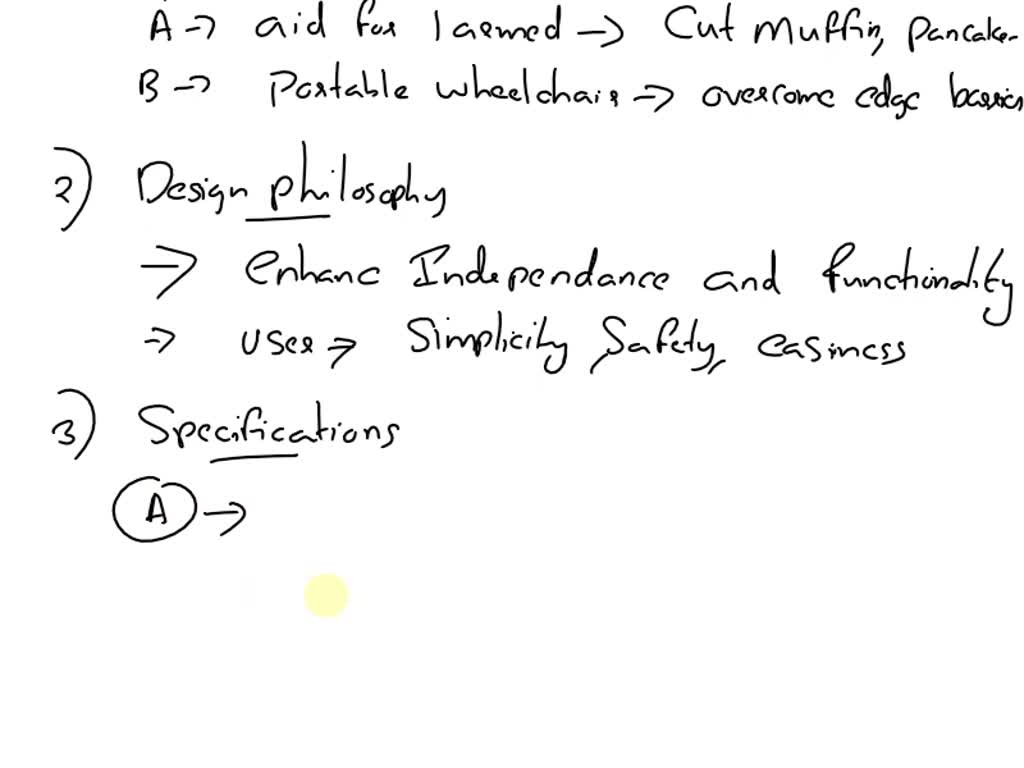 A → aid for 1 armed → Cut Muffin, Pancake
B → Portable wheelchair → overcome edge
2) Design philosophy
⇒ enhanc Independance and functionality
⇒ user → Simplicity, Safety, easiness
3) Specifications
A →